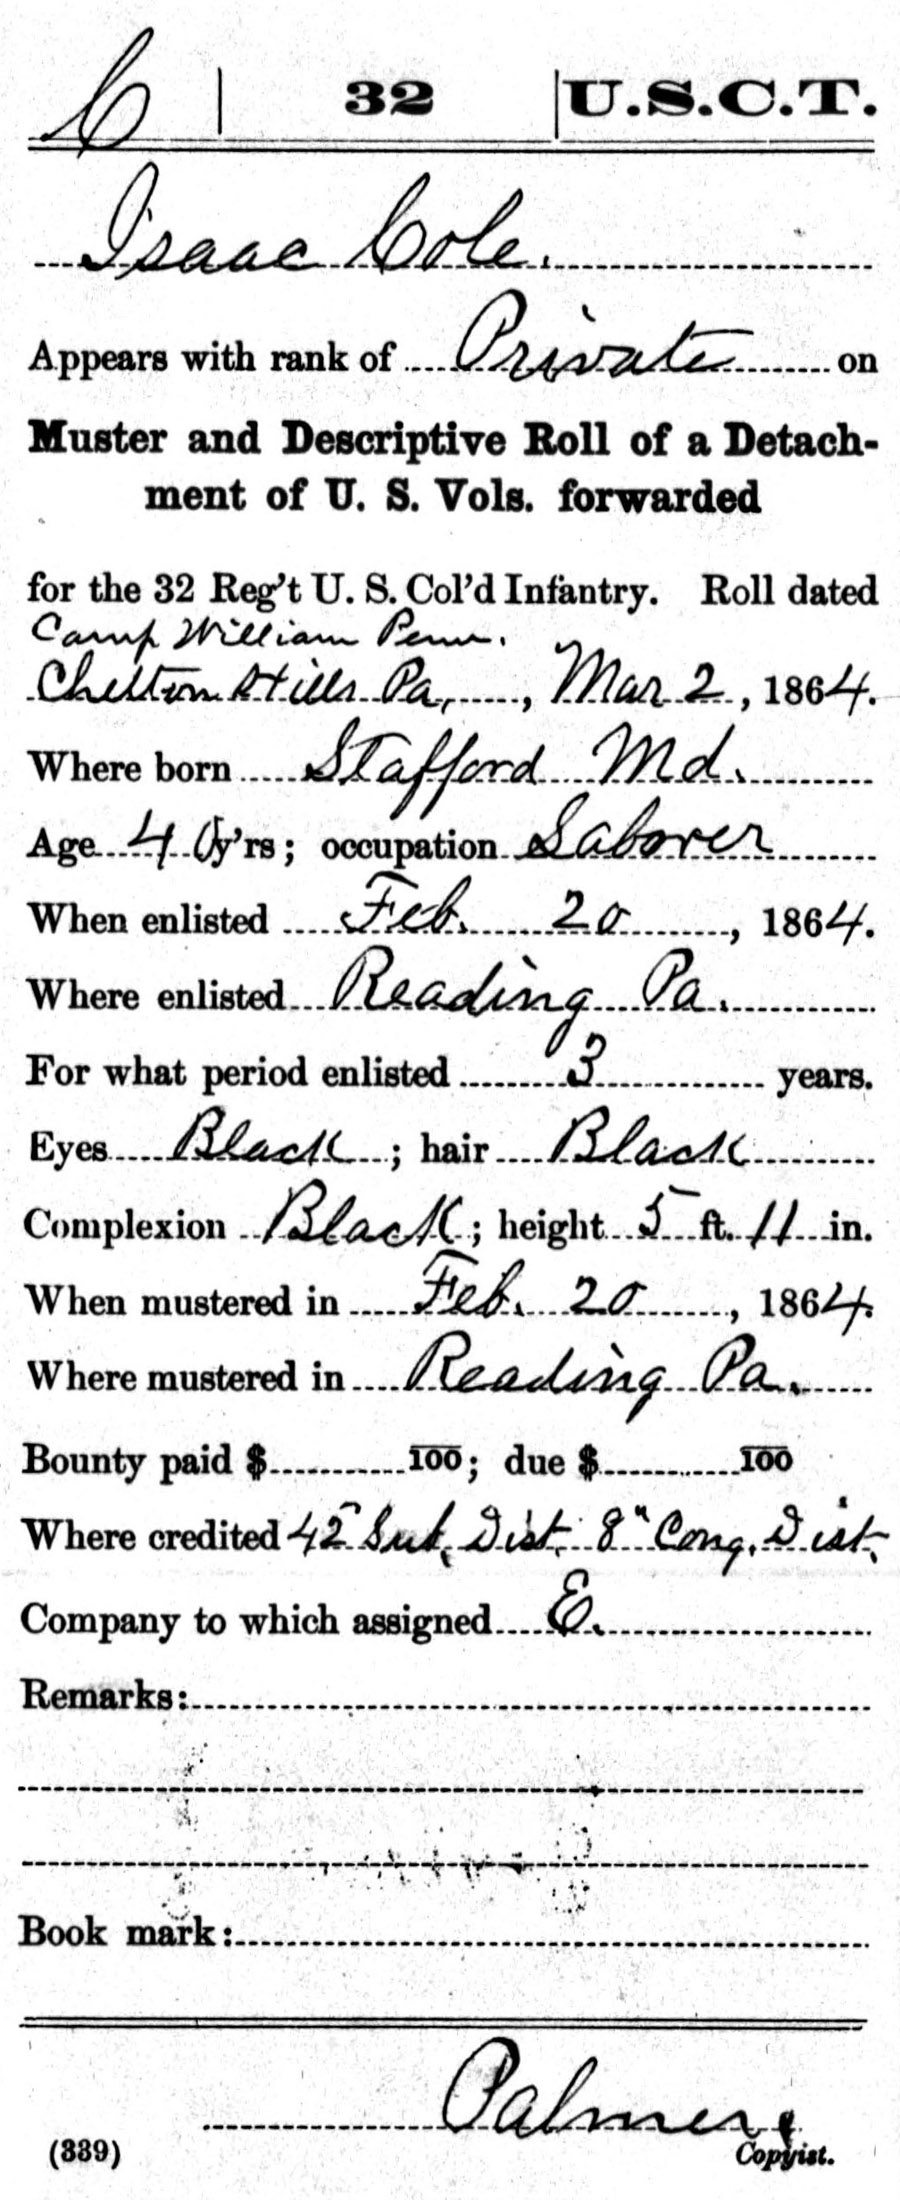 C | 32 | U.S.C.T.
Isaac Cole.
Appears with rank of Private on
Muster and Descriptive Roll of a Detach-
ment of U. S. Vols. forwarded
for the 32 Reg't U. S. Col'd Infantry. Roll dated
Camp William Penn.
Chelton Hills Pa, , Mar 2, 1864.
Where born Stafford Md.
Age 40 y'rs; occupation Laborer
When enlisted Feb. 20, 1864.
Where enlisted Reading Pa.
For what period enlisted 3 years.
Eyes Black; hair Black
Complexion Black; height 5 ft. 11 in.
When mustered in Feb. 20, 1864.
Where mustered in Reading Pa.
Bounty paid $ 100; due $ 100
Where credited 42" Sub. Dist. 8" Cong. Dist.
Company to which assigned E.
Remarks:
Book mark:
Palmer
(339) Copyist.